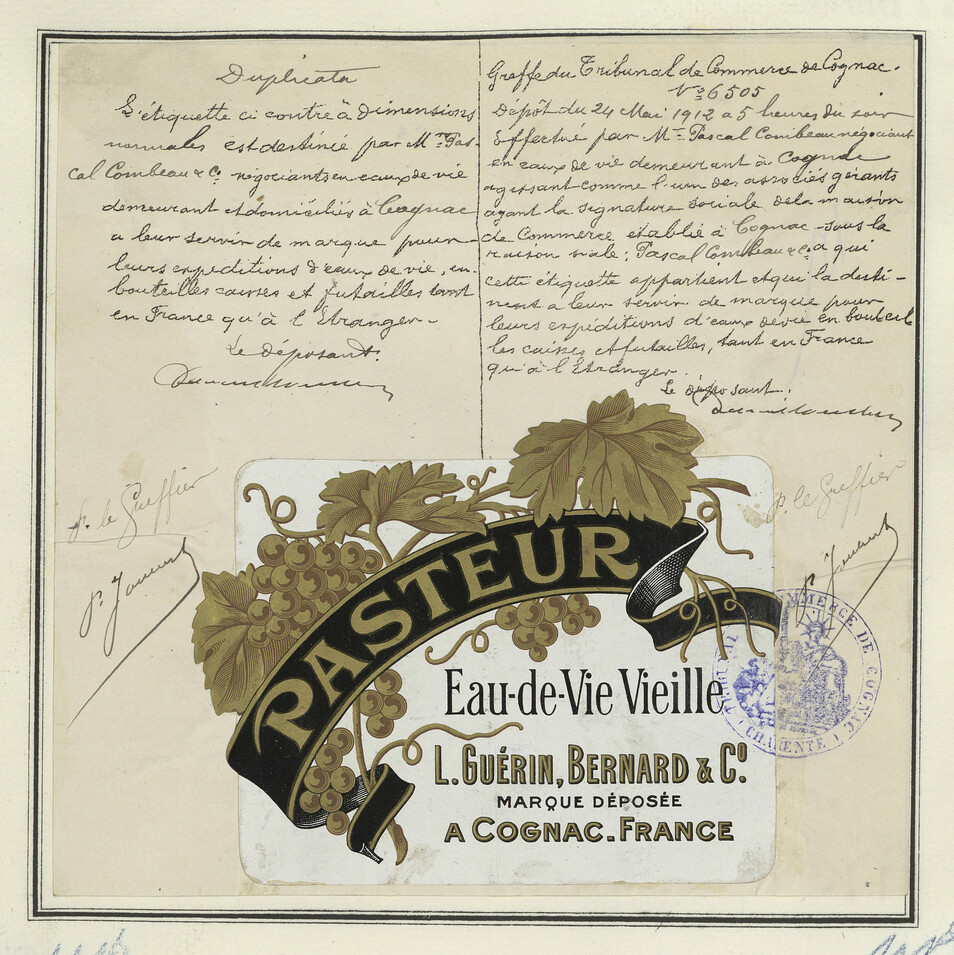 Duplicata
L'étiquette ci contre à dimensions
normales est destinée par Mrs Pas-
cal Combeau & Co. négociants en eaux de vie
demeurant et domiciliés à Cognac
a leur servir de marque pour
leurs expeditions d'eaux de vie, en
bouteilles caisses et futailles tant
en France qu'à l'Etranger-
Le déposant.
P. le Greffier
Greffe du Tribunal de Commerce de Cognac.
No 6505
Dépôt du 24 Mai 1912 a 5 heures du soir
Effectué par Mr Pascal Combeau négociant
en eaux de vie demeurant à Cognac
agissant comme l'un des associés gérants
ayant la signature sociale de la maison
de Commerce établie à Cognac sous la
raison siale; Pascal Combeau & Co a qui
cette étiquette appartient et qui la desti-
nent a leur servir de marque pour
leurs expéditions d'eaux de vie en bouteil
les caisses et futailles, tant en France
qu'à l'Etranger.
Le déposant.
P. le Greffier
PASTEUR
Eau-de-Vie Vieille
L. GUÉRIN, BERNARD & Co.
MARQUE DÉPOSÉE
A COGNAC. FRANCE
TRIBUNAL DE COMMERCE DE COGNAC
CHARENTE